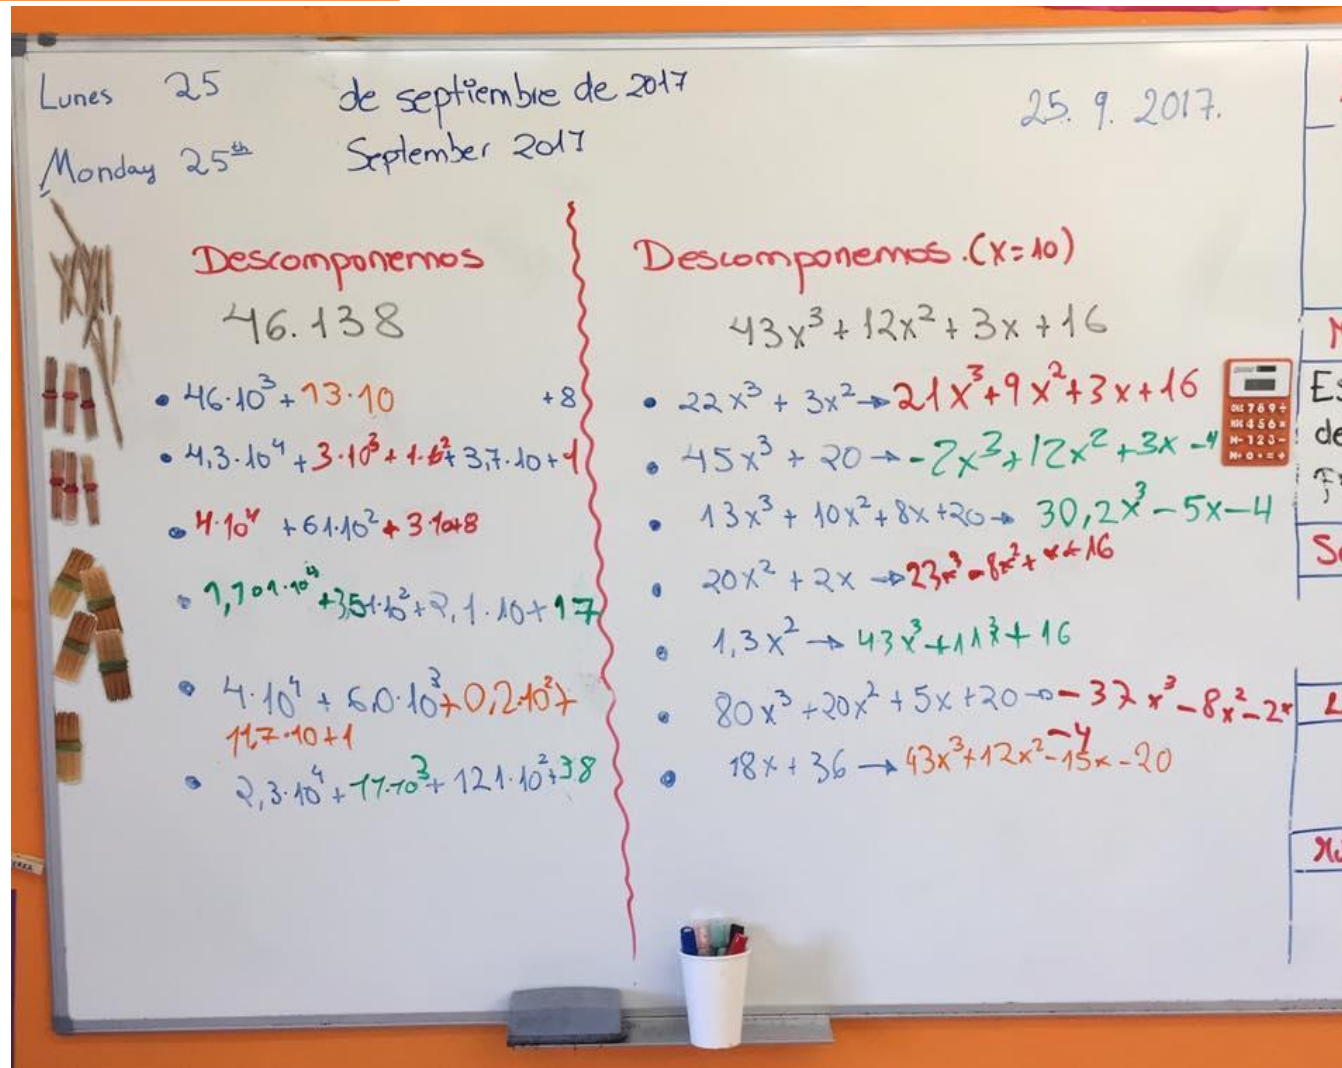 Lunes 25 de septiembre de 2017
25. 9. 2017.
Monday 25th September 2017
Descomponemos
46.138
• 46·10³ + 13·10 +8
• 4,3·10⁴ + 3·10³ + 1·10² + 3,7·10 + 1
• 4·10⁴ + 61·10² + 3·10+8
+ 2,1·10 + 17
• 4·10⁴ + 6,0·10³ + 0,2·10² +
11,7·10 + 1
• 2,3·10⁴ + 11·10³ + 121·10² + 38
Descomponemos.(x=10)
43x³ + 12x² + 3x + 16
• 22x³ + 3x² → 21x³ + 9x² + 3x + 16
• 45x³ + 20 → -2x³ + 12x² + 3x - 4
• 13x³ + 10x² + 8x + 20 → 30,2x³ - 5x - 4
• 20x² + 2x → 23x³ - 8x² + x + 16
• 1,3x² → 43x³ + 11 + 16
• 80x³ + 20x² + 5x + 20 → -37x³ - 8x² - 2x
-4
• 18x + 36 → 43x³ + 12x² - 15x - 20
Es
de